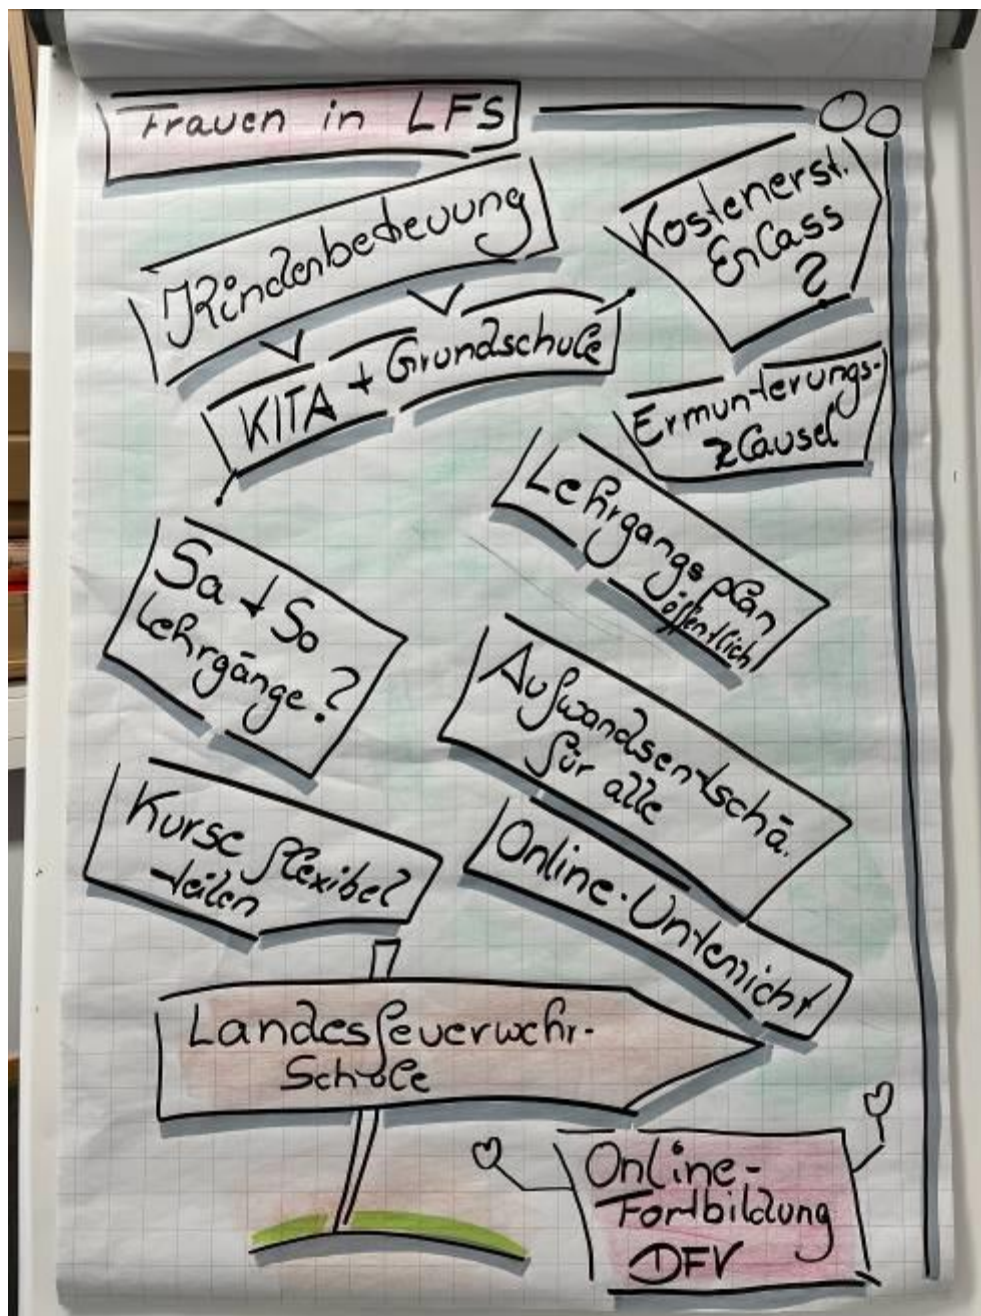 Frauen in LFS
Kinderbetreuung
KITA + Grundschule
Kostenerst.
Erlass
?
Ermunterungs-
klausel
Lehrgangsplan
öffentlich
Sa + So
Lehrgänge?
Aufwandsentschä.
für alle
Kurse flexibel
teilen
Online-Unterricht
Landesfeuerwehr-
Schule
Online-
Fortbildung
DFV